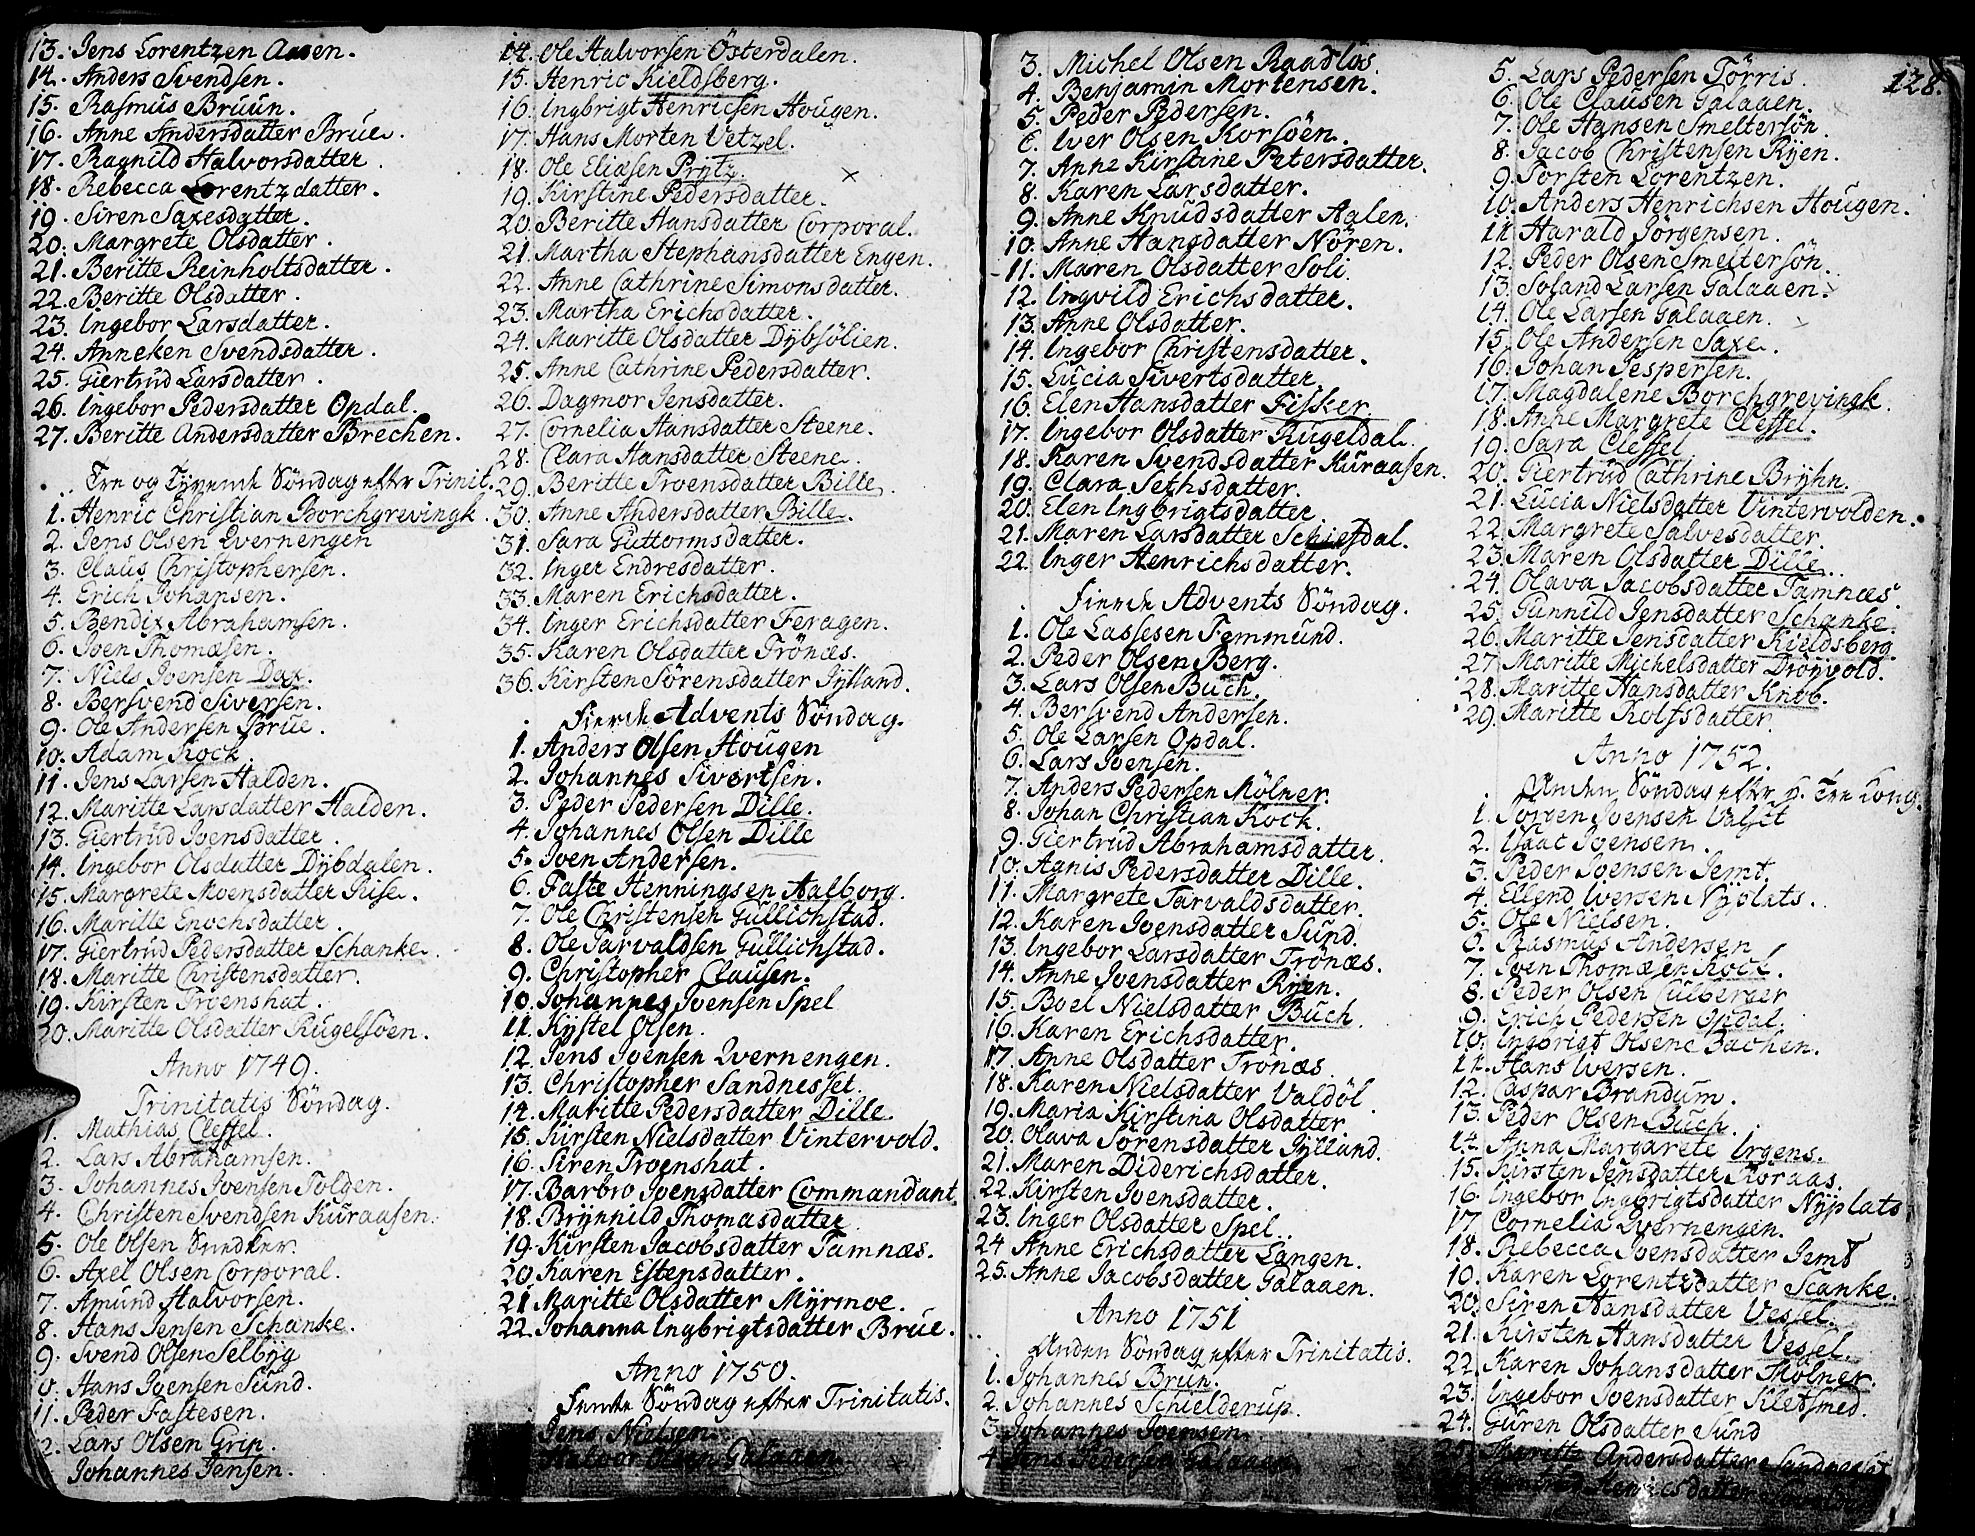 13. Jens Lorentzen Aasen.
14. Anders Svendsen.
15. Rasmus Bruun.
16. Anne Andersdatter Brue.
17. Ragnild Halvorsdatter.
18. Rebecca Lorentzdatter.
19. Siren Saxesdatter.
20. Margrete Olsdatter.
21. Beritte Reinholtsdatter.
22. Beritte Olsdatter.
23. Ingebor Larsdatter.
24. Anneken Svendsdatter.
25. Giertrud Larsdatter.
26. Ingebor Pedersdatter Opdal.
27. Beritte Andersdatter Brechen.
Tre og Tyvende Söndag efter Trinit.
1. Henric Christian Borchgrevingk.
2. Jens Olsen Qvernengen
3. Claus Christophersen.
4. Erich Johansen.
5. Bendix Abrahamsen.
6. Joen Thomæsen.
7. Niels Joensen Dax.
8. Bersvend Siversen.
9. Ole Andersen Brue.
10. Adam Kock.
11. Jens Larsen Halden.
12. Maritte Larsdatter Aalden.
13. Giertrud Joensdatter.
14. Ingebor Olsdatter Dybdalen.
15. Margrete Moensdatter Tuse.
16. Maritte Enochsdatter.
17. Giertrud Pedersdatter Schanke.
18. Maritte Christensdatter.
19. Kirsten Troenshat.
20. Maritte Olsdatter Rugelsöen.
Anno 1749.
Trinitatis Söndag.
1. Mathias Cleffel.
2. Lars Abrahamsen.
3. Johannes Joensen Tolgen.
4. Christen Svendsen Kuraasen.
5. Ole Olsen Sundker.
6. Axel Olsen Corporal.
7. Amund Halvorsen.
8. Hans Jensen Schanke.
9. Svend Olsen Selbyg
0. Hans Joensen Sund.
11. Peder Fastesen.
2. Lars Olsen Grip.
Johannes Jensen.
14. Ole Halvorsen Österdalen.
15. Henric Kieldsberg.
16. Ingbrigt Henricsen Hougen.
17. Hans Morten Vetzel.
18. Ole Eliasen Prytz.
19. Kirstine Pedersdatter.
20. Beritte Hansdatter Corporal.
21. Martha Stephansdatter Engen.
22. Anne Cathrine Simonsdatter.
23. Martha Erichsdatter.
24. Maritte Olsdatter Dybsölien.
25. Anne Cathrine Pedersdatter.
26. Dagmor Jensdatter.
27. Cornelia Hansdatter Steene.
28. Clara Hansdatter Steene.
29. Beritte Troensdatter Bille.
30. Anne Andersdatter Bille.
31. Sara Guttormsdatter.
32. Inger Endresdatter.
33. Maren Erichsdatter.
34. Inger Erichsdatter Feragen.
35. Karen Olsdatter Trönæs.
36. Kirsten Sörensdatter Jylland.
Fierde Advents Söndag.
1. Anders Olsen Hougen
2. Johannes Sivertsen.
3. Peder Pedersen Dille.
4. Johannes Olsen Dille
5. Joen Andersen.
6. Faste Henningsen Aalborg.
7. Ole Christensen Gullichstad.
8. Ole Tarvaldsen Gullichstad.
9. Christopher Clausen.
10. Johannes Joensen Spel
11. Kystel Olsen.
12. Jens Joensen Qvernengen.
13. Christopher Sandnesset.
14. Maritte Pedersdatter Dille.
15. Kirsten Nielsdatter Vintervold.
16. Siren Troenshat.
17. Barbro Joensdatter Commandant.
18. Brynnild Thomasdatter
19. Kirsten Jacobsdatter Tamnæs.
20. Karen Estensdatter.
21. Maritte Olsdatter Myrmoe.
22. Johanna Ingbrigtsdatter Brue.
Anno 1750.
Femte Söndag efter Trinitatis.
Jens Nielsen.
Halvor Olsen Galaaen.
3. Michel Olsen Raadlös.
4. Benjamin Mortensen.
5. Peder Pedersen.
6. Iver Olsen Korsöen.
7. Anne Kirstine Petersdatter.
8. Karen Larsdatter.
9. Anne Knudsdatter Aalen.
10. Anne Hansdatter Nören.
11. Maren Olsdatter Soli
12. Ingvild Erichsdatter.
13. Anne Olsdatter.
14. Ingebor Christensdatter.
15. Lucia Sivertsdatter
16. Elen Hansdatter Fisker.
17. Ingebor Olsdatter Rugeldal.
18. Karen Svendsdatter Kuraasen.
19. Clara Sethsdatter.
20. Elen Ingbrigtsdatter
21. Maren Larsdatter Schiefdal.
22. Inger Henrichsdatter.
Fierde Advents Söndag.
1. Ole Lassesen Femmund.
2. Peder Olsen Berg.
3. Lars Olsen Buch.
4. Bersvend Andersen.
5. Ole Larsen Opdal.
6. Lars Joensen.
7. Anders Pedersen Mölner.
8. Johan Christian Kock.
9. Giertrud Abrahamsdatter.
10. Agnis Pedersdatter Dille.
11. Margrete Tarvaldsdatter.
12. Karen Joensdatter Sund.
13. Ingebor Larsdatter Trönæs.
14. Anne Joensdatter Ryen.
15. Boel Nielsdatter Buch.
16. Karen Erichsdatter.
17. Anne Olsdatter Trönæs.
18. Karen Nielsdatter Valdöl.
19. Maria Kirstina Olsdatter
20. Olava Sörensdatter Jylland.
21. Maren Diderichsdatter.
22. Kirsten Joensdatter.
23. Inger Olsdatter Spel.
24 Anne Erichsdatter Langen.
25. Anne Jacobsdatter Galaaen.
Anno 1751
Anden Söndag efter Trinitatis.
1. Johannes Brun.
2. Johannes Schielderup.
3. Johannes Joensen.
4. Jens Pedersen Galaaen
128.
5. Lars Pedersen Törris.
6. Ole Clausen Galaaen.
7. Ole Hansen Smeltersön.
8. Jacob Christensen Ryen.
9. Torsten Lorentzen.
10. Anders Henrichsen Hougen.
11. Harald Jörgensen.
12. Peder Olsen Smeltersön.
13. Joland Larsen Galaaen.
14. Ole Larsen Galaaen.
15. Ole Andersen Saxe.
16. Johan Jespersen.
17. Magdalene Borchgrevingk.
18. Anne Margrete Cleffel.
19. Sara Cleffel
20. Giertrud Cathrine Bryhn.
21. Lucia Nielsdatter Vintervolden.
22. Margrete Salvesdatter.
23. Maren Olsdatter Dille.
24. Olava Jacobsdatter Tamnæs.
25. Gunnild Jensdatter Schanke.
26. Maritte Jensdatter Kieldsberg
27. Maritte Michelsdatter Dröyvold.
28. Maritte Hansdatter Knob.
29. Maritte Rolfsdatter.
Anno 1752.
Anden Söndag efter H. Tre Kong.
1. Joen Joensen Valset
2. Isaac Joensen.
3. Peder Joensen Jemt.
4. Ellend Iversen Nyplats.
5. Ole Nielsen.
6. Rasmus Andersen
7. Joen Thomæsen Kock.
8. Peder Olsen Culberger
9. Erich Pedersen Opdal.
10. Ingbrigt Olsen Bachen.
11. Hans Iversen.
12. Caspar Brandum.
13. Peder Olsen Buch.
14. Anna Margarete Irgens.
15. Kirsten Jensdatter Koraas.
16. Ingebor Ingbrigtsdatter Nyplats
17. Cornelia Qvernengen.
18. Rebecca Joensdatter Jemt
10. Karen Lorentzdatter Scanke.
20. Siren Hansdatter Vessel.
21. Kirsten Hansdatter Vessel.
22. Karen Johansdatter Mölner.
23. Ingebor Joensdatter Kletsmed.
24. Guren Olsdatter Sund
25. Maritte Andersdatter Sandnesset
Henricsdatter